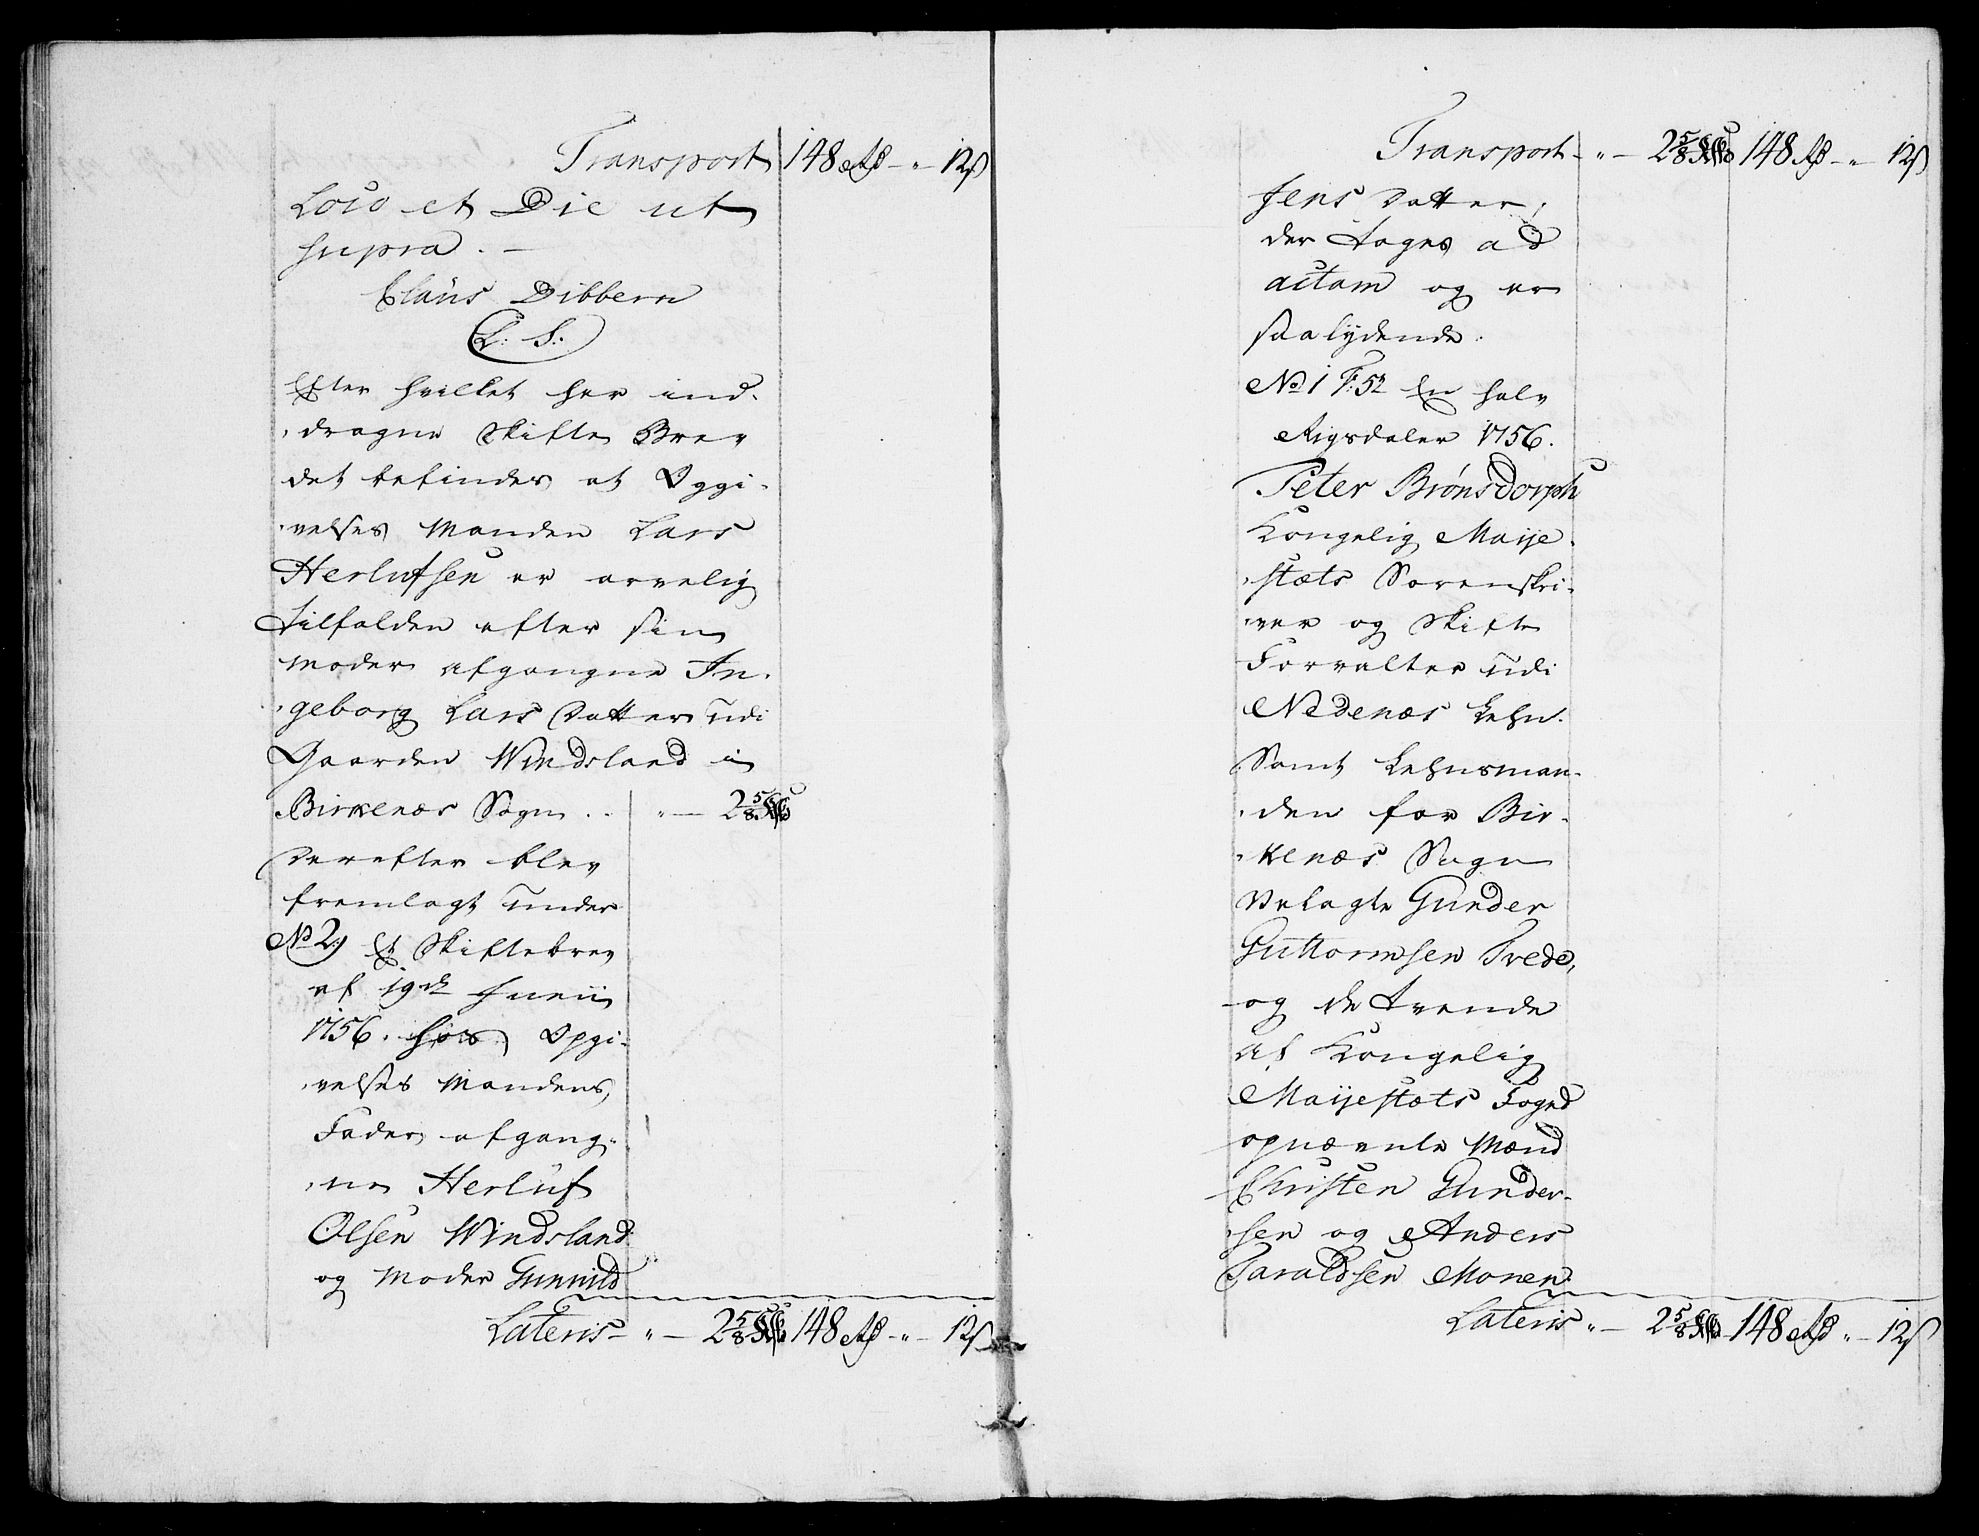 Transport 148 Rd - " - 12 s
Loco et Die ut
supra. -
Claus Dibbern
L: S:
Efter hvilket her ind-
dragne Skifte Brev
det befindes at Opgi-
velses Manden Lars
Herlufsen er arvelig
tilfalden efter sin
Moder afgangne In-
geborg Lars Datter udi
Gaarden Windsland i
Birkenæs Sogn . . " - 2 5/8
Derefter blev
fremlagt under
No 2, Et Skiftebrev
af 19de Junii
1756. hos Opgi-
velses Mandens
Fader afgang-
ne Herluf
Olsen Windsland
og Moder Gunnild
Lateris - " - 2 5/8 148 Rd - " - 12 s
Transport - " - 2 5/8 148 Rd - " - 12 s
Jens Datter,
der toges ad
actam og er
saa lydende.
No 1 F: 52 En halv
Rigsdaler 1756.
Peter Brønsdorph
Kongelig Maije-
stæts Sorenskri-
ver og Skifte
Forvalter udi
Nedenæs Lehn.
Samt Lehnsman-
den for Bir-
kenæs Sogn
Velagte Gunder
Guttormsen Trede,
og de tvende
af Kongelig
Maijestæts Foged
opnævnte Mænd
Christen Gunder-
sen og Anders
Taraldsen Monen
Lateris " - 2 5/8 148 Rd " - 12 s